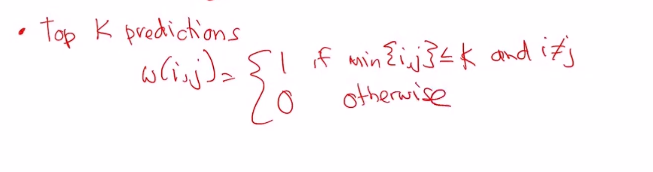 • Top K predictions
w(i,j) = { 1 if min{i,j} ≤ K and i≠j
0 otherwise